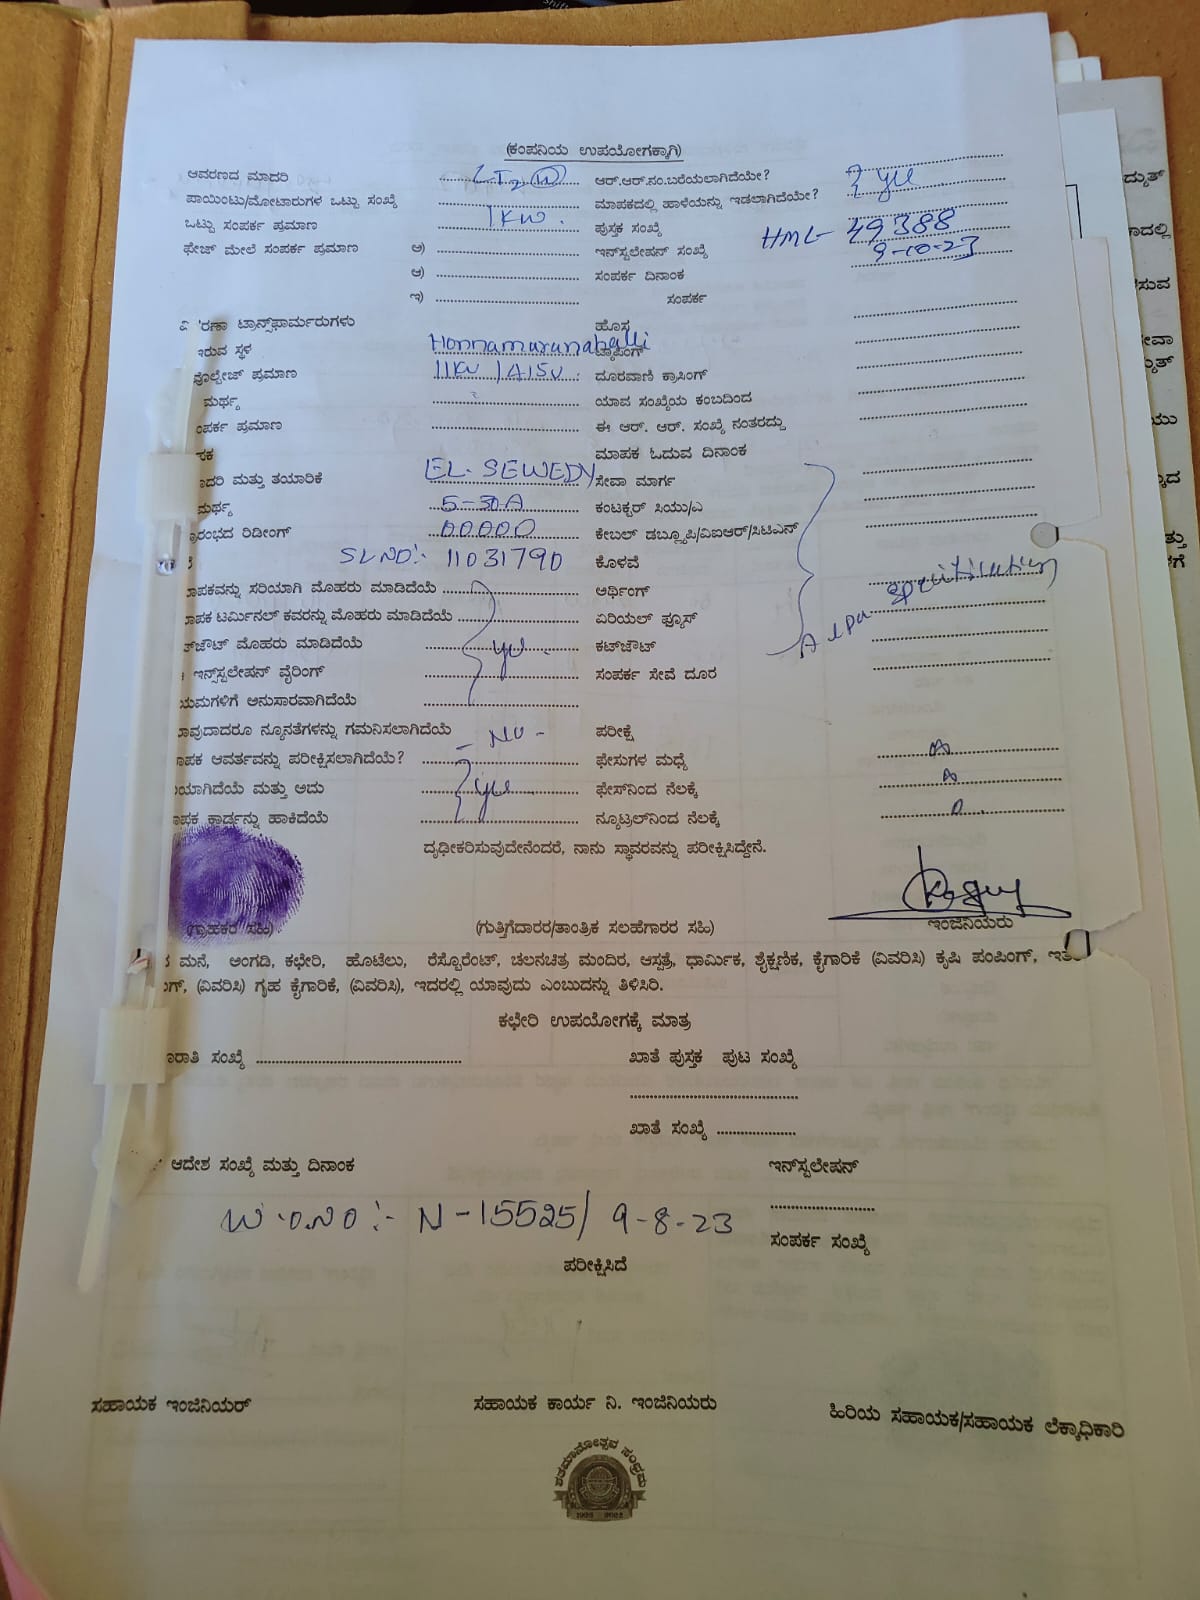 (ಕಂಪನಿಯ ಉಪಯೋಗಕ್ಕಾಗಿ)
ಆವರಣದ ಮಾದರಿ LT2 ಆರ್.ಆರ್.ನಂ.ಬರೆಯಲಾಗಿದೆಯೇ?
ಪಾಯಿಂಟು/ಮೋಟಾರುಗಳ ಒಟ್ಟು ಸಂಖ್ಯೆ ಮಾಪಕದಲ್ಲಿ ಹಾಳೆಯನ್ನು ಇಡಲಾಗಿದೆಯೇ?
ಒಟ್ಟು ಸಂಪರ್ಕ ಪ್ರಮಾಣ 1KW. ಪುಸ್ತಕ ಸಂಖ್ಯೆ
ಫೇಜ್ ಮೇಲೆ ಸಂಪರ್ಕ ಪ್ರಮಾಣ ಅ) ಇನ್‌ಸ್ಟಲೇಷನ್ ಸಂಖ್ಯೆ HML- 49388
ಆ) ಸಂಪರ್ಕ ದಿನಾಂಕ 9-10-23
ಇ) ಸಂಪರ್ಕ
ರಣಾ ಟ್ರಾನ್ಸ್‌ಫಾರ್ಮರುಗಳು ಹೊಸ
ಇರುವ ಸ್ಥಳ Honnamaranahalli ಟ್ಯಾಪಿಂಗ್
ವೋಲ್ಟೇಜ್ ಪ್ರಮಾಣ 11KV 1415V ದೂರವಾಣಿ ಕ್ರಾಸಿಂಗ್
ಮರ್ಥ್ಯ ಯಾವ ಸಂಖ್ಯೆಯ ಕಂಬದಿಂದ
ಂಪರ್ಕ ಪ್ರಮಾಣ ಈ ಆರ್. ಆರ್. ಸಂಖ್ಯೆ ನಂತರದ್ದು
ಪಕ ಮಾಪಕ ಓದುವ ದಿನಾಂಕ
ಾದರಿ ಮತ್ತು ತಯಾರಿಕೆ EL-SEWEDY ಸೇವಾ ಮಾರ್ಗ
ಮರ್ಥ್ಯ 5-30A ಕಂಟಕ್ಟರ್ ಸಿಯು/ಎ
ಾರಂಭದ ರಿಡೀಂಗ್ 00000 ಕೇಬಲ್ ಡಬ್ಲ್ಯೂಪಿ/ವಿಐಆರ್/ಸಿಟಿಎನ್
SLNO:- 11031790 ಕೊಳವೆ
ಾಪಕವನ್ನು ಸರಿಯಾಗಿ ಮೊಹರು ಮಾಡಿದೆಯೆ ಅರ್ಥಿಂಗ್
ಾಪಕ ಟರ್ಮಿನಲ್ ಕವರನ್ನು ಮೊಹರು ಮಾಡಿದೆಯೆ ಏರಿಯಲ್ ಫ್ಯೂಸ್
ಟ್‌ಔಟ್ ಮೊಹರು ಮಾಡಿದೆಯೆ ಕಟ್‌ಔಟ್
ಇನ್ಸ್‌ಸ್ಟಲೇಷನ್ ವೈರಿಂಗ್ ಸಂಪರ್ಕ ಸೇವೆ ದೂರ
ಯಮಗಳಿಗೆ ಅನುಸಾರವಾಗಿದೆಯೆ
ಾವುದಾದರೂ ನ್ಯೂನತೆಗಳನ್ನು ಗಮನಿಸಲಾಗಿದೆಯೆ - NO - ಪರೀಕ್ಷೆ
ಾಪಕ ಆವರ್ತವನ್ನು ಪರೀಕ್ಷಿಸಲಾಗಿದೆಯೆ? ಫೇಸುಗಳ ಮಧ್ಯೆ
ಯಾಗಿದೆಯೆ ಮತ್ತು ಅದು ಫೇಸ್‌ನಿಂದ ನೆಲಕ್ಕೆ
ಾಪಕ ಕಾರ್ಡನ್ನು ಹಾಕಿದೆಯೆ ನ್ಯೂಟ್ರಲ್‌ನಿಂದ ನೆಲಕ್ಕೆ
ದೃಢೀಕರಿಸುವುದೇನೆಂದರೆ, ನಾನು ಸ್ಥಾವರವನ್ನು ಪರೀಕ್ಷಿಸಿದ್ದೇನೆ.
(ಗ್ರಾಹಕರ ಸಹಿ) (ಗುತ್ತಿಗೆದಾರರ/ತಾಂತ್ರಿಕ ಸಲಹೆಗಾರರ ಸಹಿ) ಇಂಜಿನಿಯರು
ಮನೆ, ಅಂಗಡಿ, ಕಛೇರಿ, ಹೊಟೆಲು, ರೆಸ್ಟೊರೆಂಟ್, ಚಲನಚಿತ್ರ ಮಂದಿರ, ಆಸ್ಪತ್ರೆ, ಧಾರ್ಮಿಕ, ಶೈಕ್ಷಣಿಕ, ಕೈಗಾರಿಕೆ (ವಿವರಿಸಿ) ಕೃಷಿ ಪಂಪಿಂಗ್,
ಂಗ್, (ವಿವರಿಸಿ) ಗೃಹ ಕೈಗಾರಿಕೆ, (ವಿವರಿಸಿ), ಇದರಲ್ಲಿ ಯಾವುದು ಎಂಬುದನ್ನು ತಿಳಿಸಿರಿ.
ಕಛೇರಿ ಉಪಯೋಗಕ್ಕೆ ಮಾತ್ರ
ಖರಾತಿ ಸಂಖ್ಯೆ ಖಾತೆ ಪುಸ್ತಕ ಪುಟ ಸಂಖ್ಯೆ
ಖಾತೆ ಸಂಖ್ಯೆ
ಆದೇಶ ಸಂಖ್ಯೆ ಮತ್ತು ದಿನಾಂಕ ಇನ್‌ಸ್ಟಲೇಷನ್
W.O.NO:- N-15525/ 9-8-23
ಸಂಪರ್ಕ ಸಂಖ್ಯೆ
ಪರೀಕ್ಷಿಸಿದೆ
ಸಹಾಯಕ ಇಂಜಿನಿಯರ್ ಸಹಾಯಕ ಕಾರ್ಯ ನಿ. ಇಂಜಿನಿಯರು ಹಿರಿಯ ಸಹಾಯಕ/ಸಹಾಯಕ ಲೆಕ್ಕಾಧಿಕಾರಿ
ಶತಮಾನೋತ್ಸವ ಸಂಭ್ರಮ